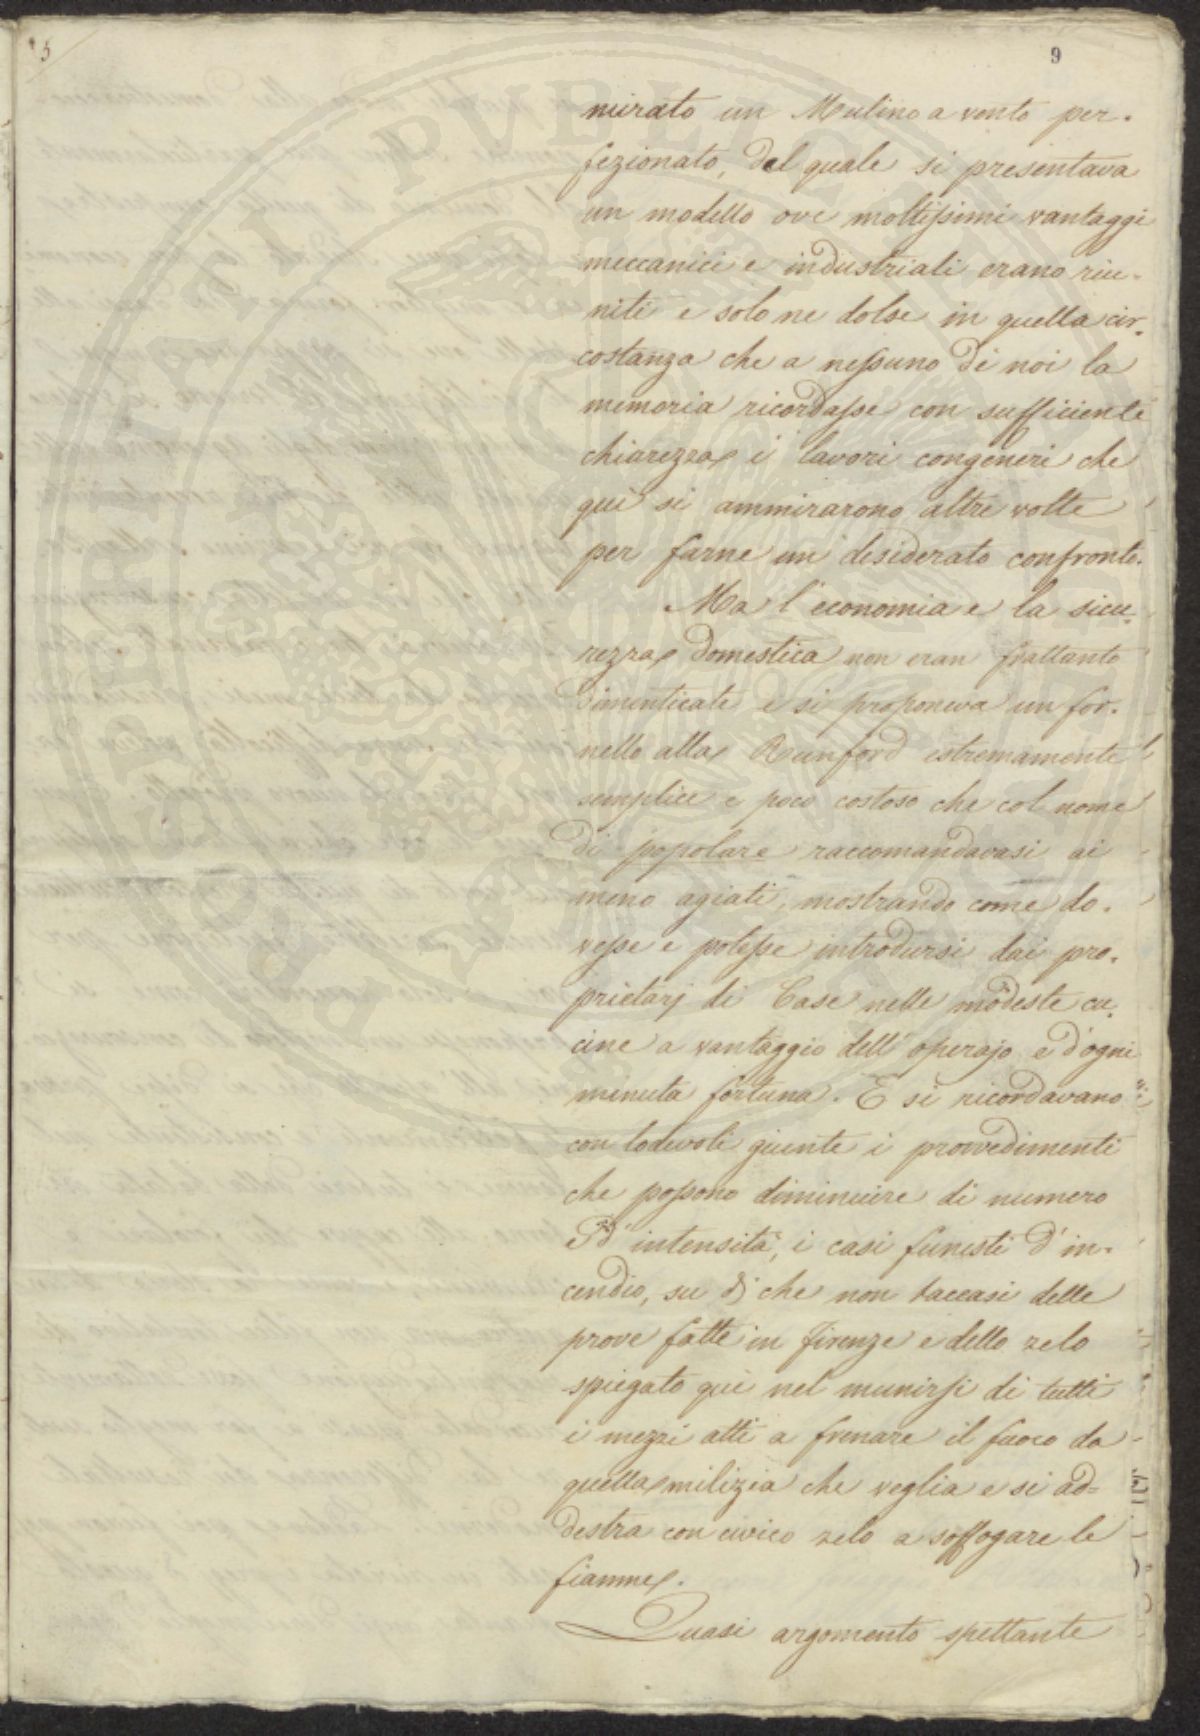 5
9
mirato un Mulino a vento per-
fezionato, del quale si presentava
un modello ove moltissimi vantaggi
meccanici e industriali erano riu-
niti e solo ne dolse in quella cir-
costanza che a nessuno di noi la
memoria ricordasse con sufficiente
chiarezza i lavori congeneri che
quì si ammirarono altre volte
per farne un desiderato confronto.
Ma l'economia e la sicu-
rezza domestica non eran frattanto
dimenticate e si proponeva un for-
nello alla Runford estremamente
semplice e poco costoso che col nome
di popolare raccomandavasi ai
meno agiati, mostrando come do-
vesse e potesse introdursi dai pro-
prietarj di Case nelle modeste cu-
cine a vantaggio dell'operajo e d'ogni
menuta fortuna. E si ricordavano
con lodevoli giunte i provvedimenti
che possono diminuire di numero
ed intensità, i casi funesti d'in-
cendio, su di che non taccasi delle
prove fatte in Firenze e dello zelo
spiegato quì nel munirsi di tutti
i mezzi atti a frenare il fuoco da
quella milizia che veglia e si ad=
destra con civico zelo a soffogare le
fiamme.
Quasi argomento spettante